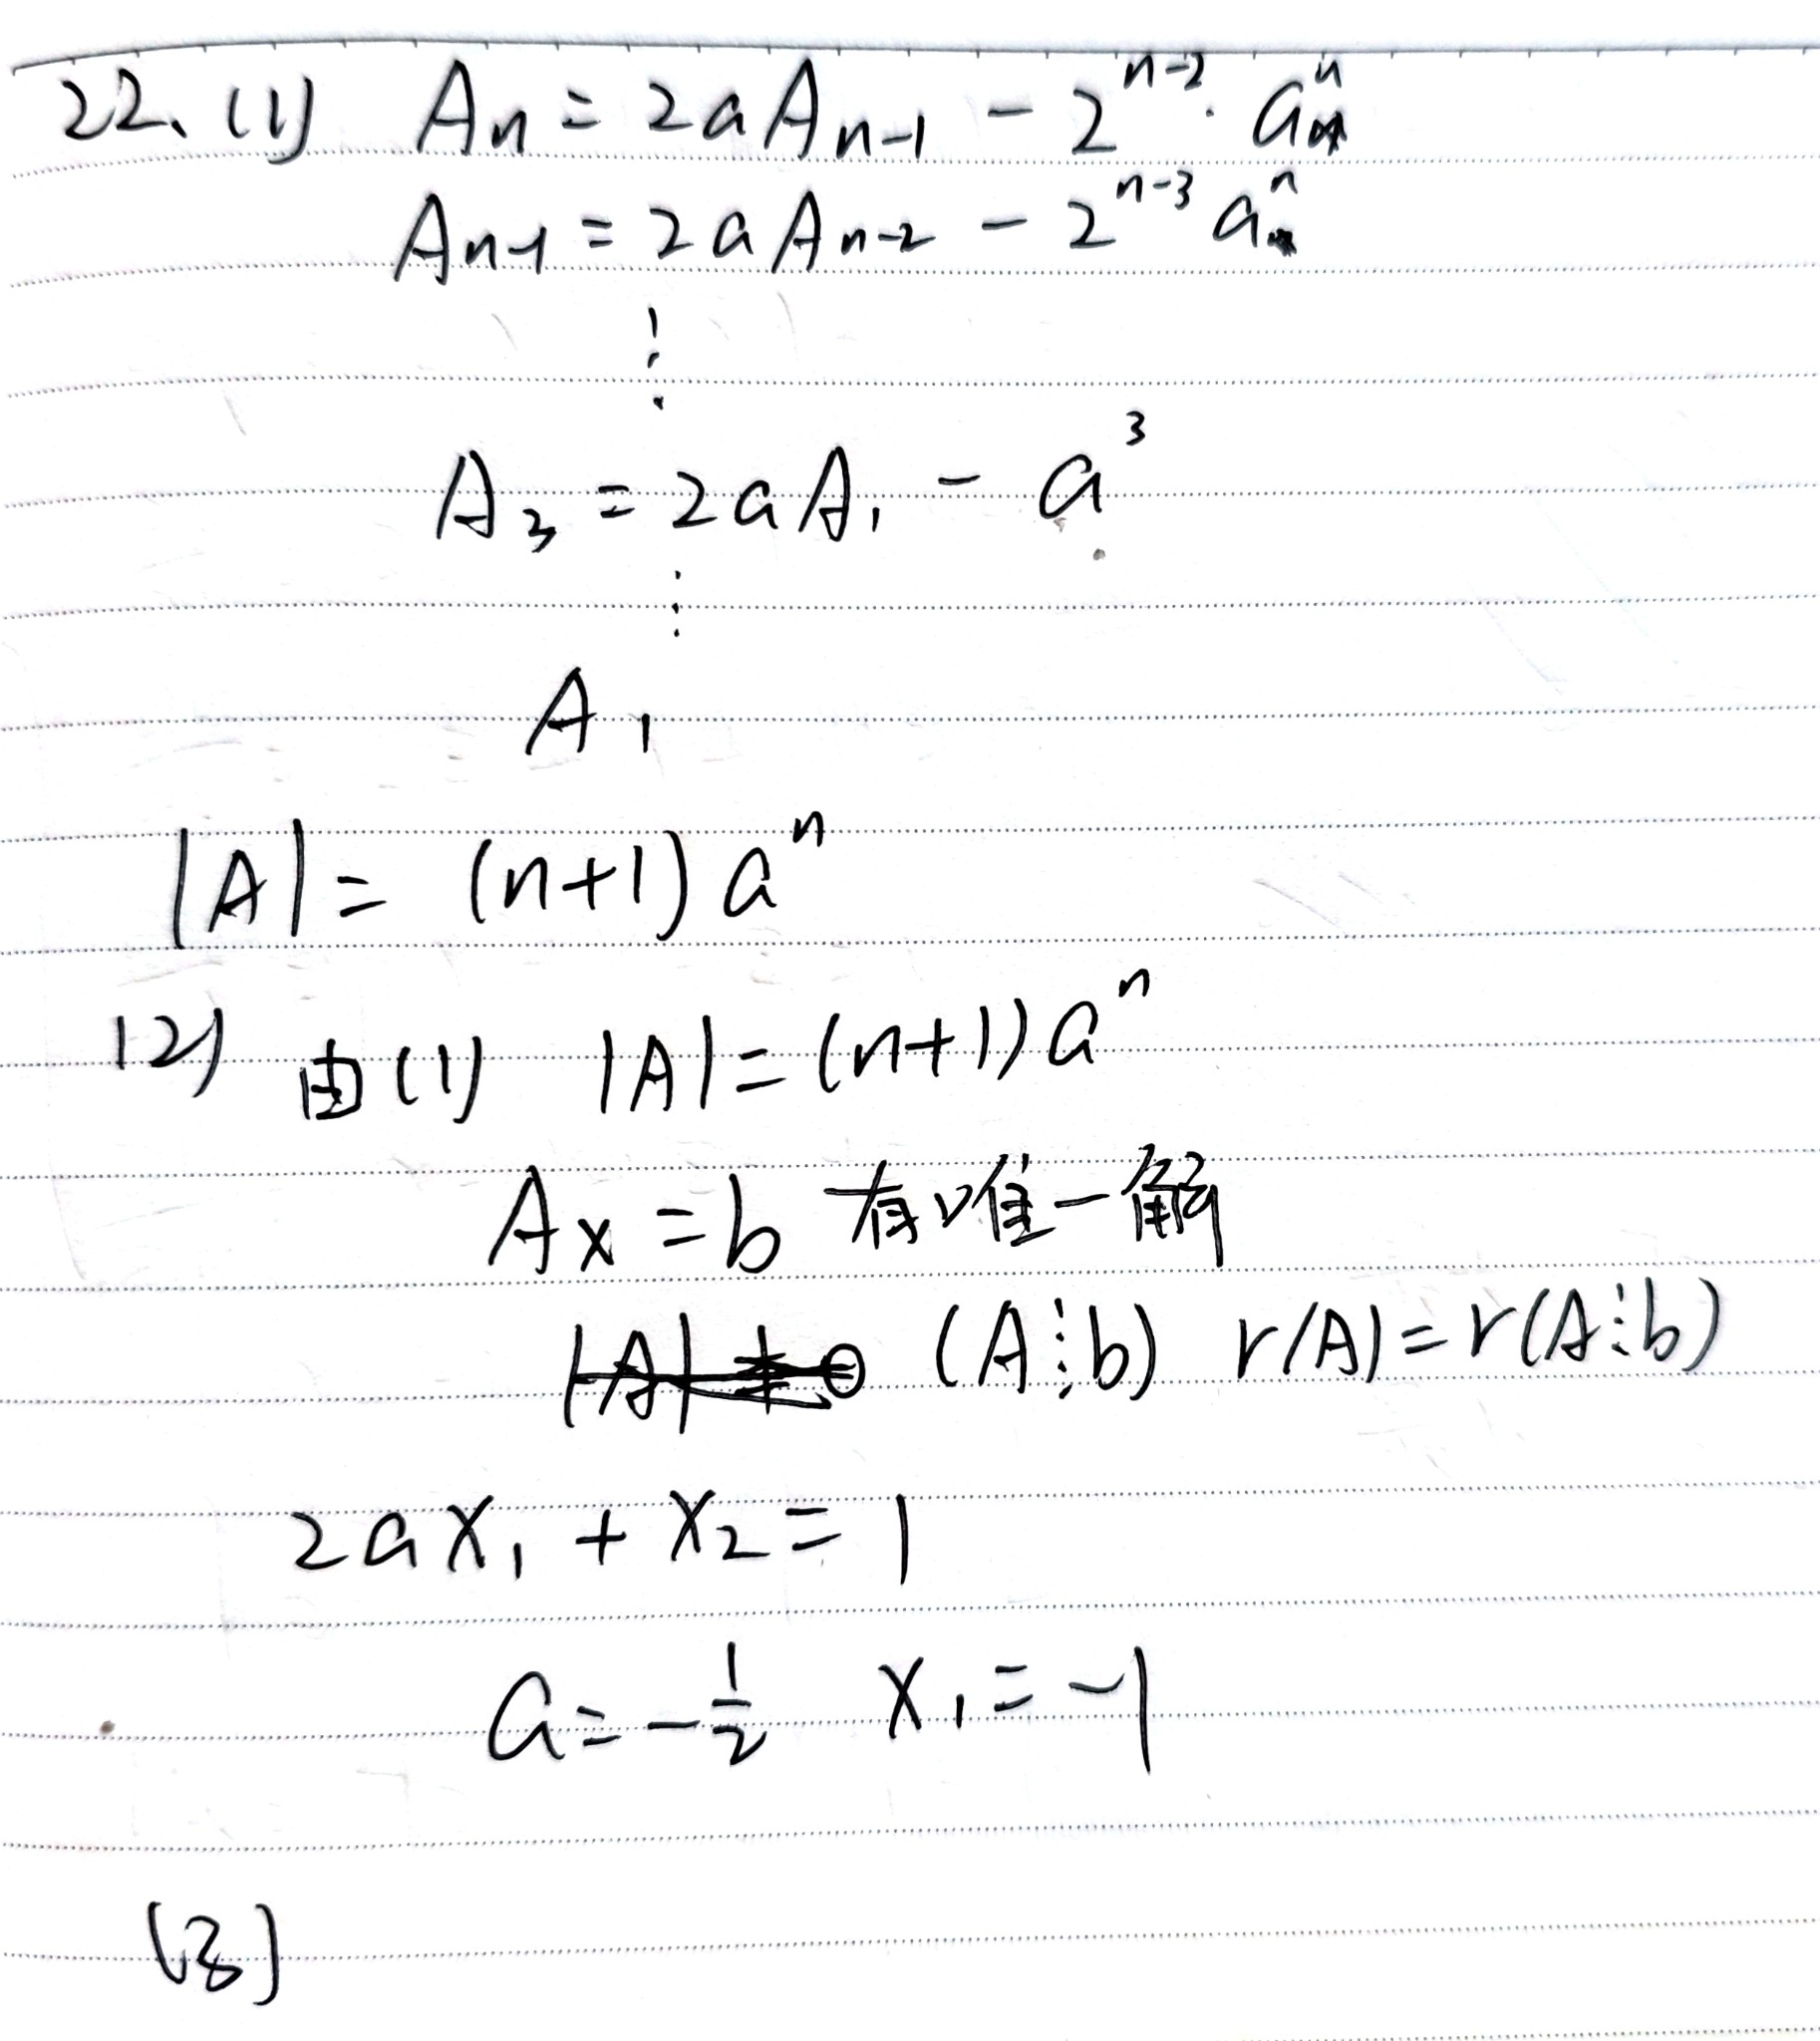 22. (1) Aₙ = 2aAₙ₋₁ - 2ⁿ⁻² · aⁿ
Aₙ₋₁ = 2aAₙ₋₂ - 2ⁿ⁻³ aⁿ
⋮
A₃ = 2aA₁ - a³
⋮
A₁
|A| = (n+1)aⁿ
(2) 由(1) |A| = (n+1)aⁿ
Ax = b 有唯一解
(A⋮b) r(A) = r(A⋮b)
2ax₁ + x₂ = 1
a = -1/2 x₁ = -1
(3)